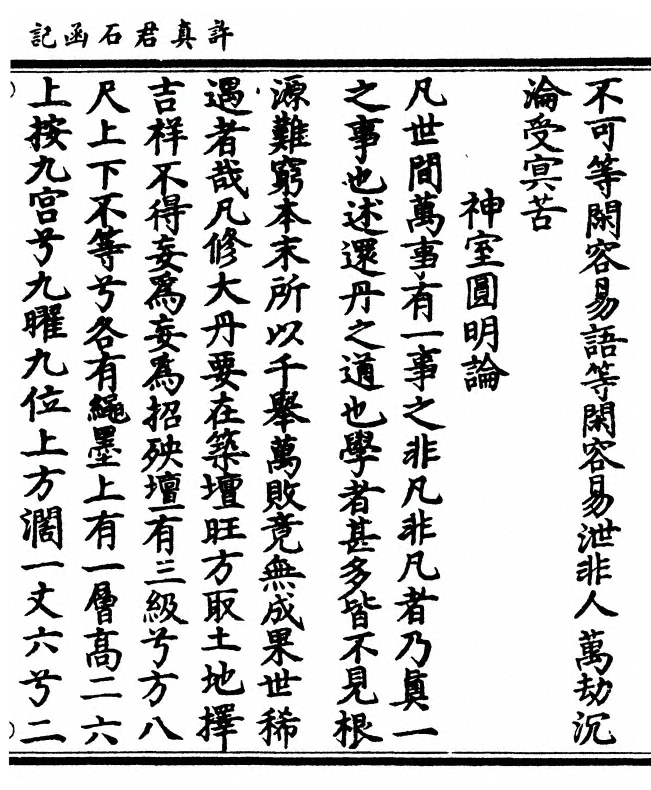 許真君石函記
不可等閑容易語等閑容易泄非人萬劫沉
淪受冥苦
神室圓明論
凡世間萬事有一事之非凡非凡者乃真一
之事也述還丹之道也學者甚多皆不見根
源難窮本末所以千舉萬敗竟無成果世稀
遇者哉凡修大丹要在築壇旺方取土地擇
吉祥不得妄為妄為招殃壇有三級兮方八
尺上下不等兮各有繩墨上有一層高二六
上按九宮兮九曜九位上方濶一丈六兮二